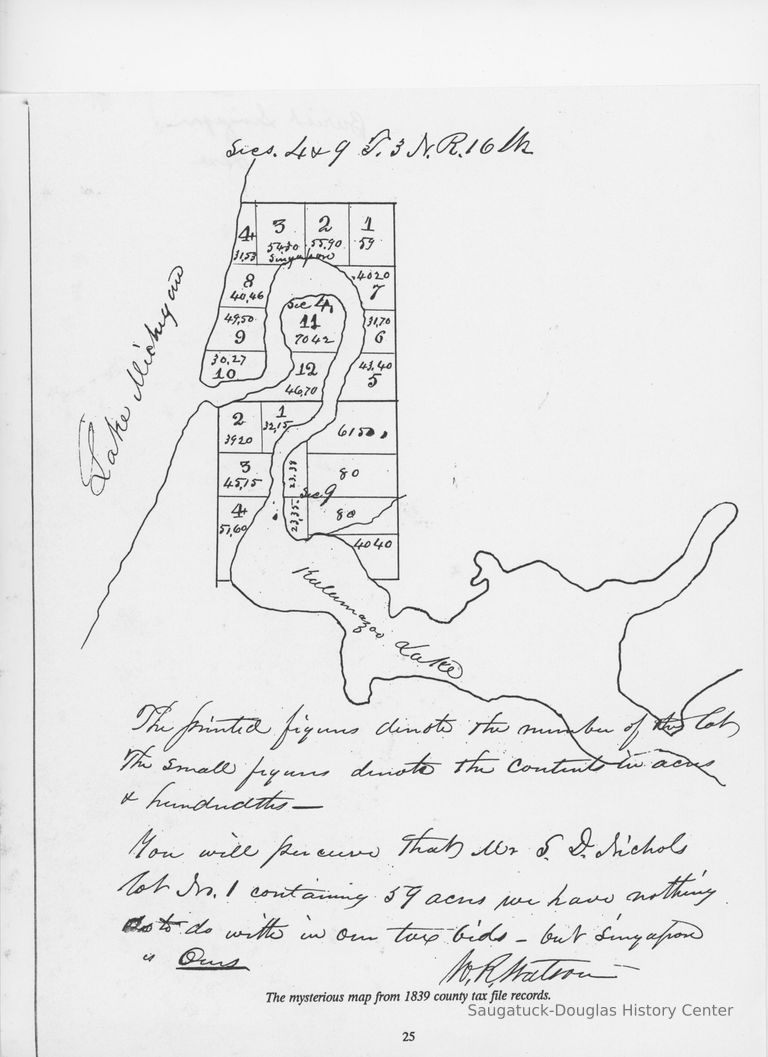 Secs. 4 & 9 T. 3 N. R. 16 W
4 3 2 1
31,53 54,30 55,90 59
Singapore
8 40,20
40,46 7
Sec 4,
49,50 11 31,70
9 70 42 6
30,27 12 43,40
10 46,70 5
Lake Michigan
2 1
39 20 32,15 61 50
3 23,38 80
45,15
Sec 9
4 23,35 80
51,60
40 40
Kalamazoo Lake
The printed figures denote the number of the lot
The small figures denote the contents in acres
& hundredths —
You will perceive that Mr S. D. Nichols
lot No. 1 containing 59 acres we have nothing
to do with in our tax bids – but Singapore
is Ours
W. R. Watson
The mysterious map from 1839 county tax file records.
Saugatuck-Douglas History Center
25